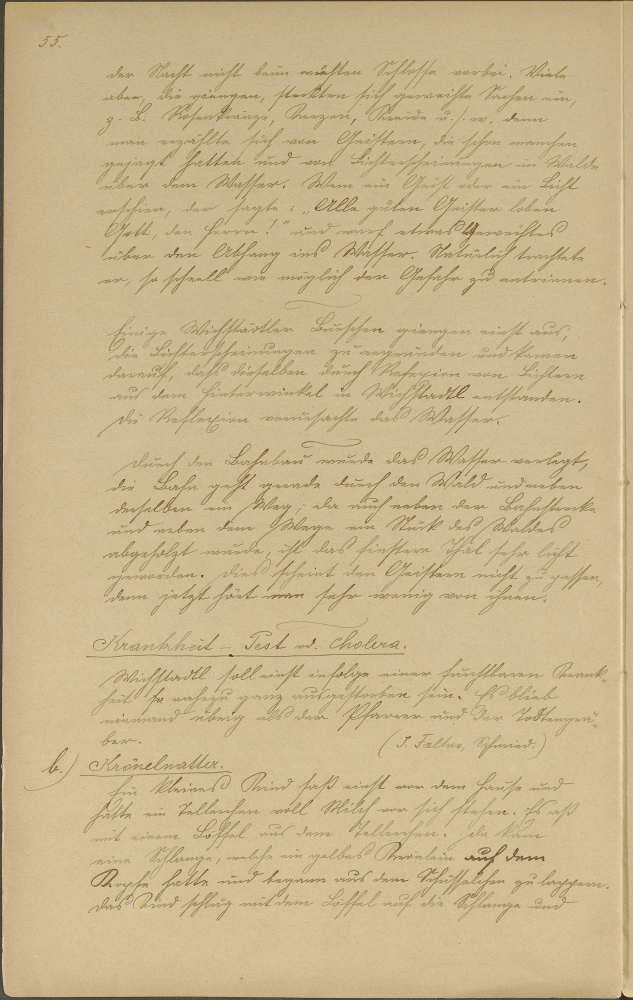 55.
der Nacht nicht beim wüsten Schlosse vorbei. Viele
aber, die giengen, steckten sich geweihte Sachen ein,
z. B. Rosenkränze, Kerzen, Kreide u. s. w. denn
man erzählte sich von Geistern, die schon manchen
gejagt hatten und von Lichterscheinungen im Walde
über dem Wasser. Wem ein Geist oder ein Licht
erschien, der sagte: „Alle guten Geister loben
Gott, den Herrn!" und warf etwas Geweihtes
über den Abhang ins Wasser. Natürlich trachtete
er, so schnell wie möglich der Gefahr zu entrinnen.
Einige Wichstadtler Burschen giengen einst aus,
die Lichterscheinungen zu ergründen und kamen
darauf, daß dieselben durch Reflexion von Lichtern
aus dem Hinterwinkel in Wichstadtl entstanden.
Die Reflexion verursachte das Wasser.
Durch den Bahnbau wurde das Wasser verlegt,
die Bahn geht gerade durch den Wald und neben
derselben ein Weg; da auch neben der Bahnstrecke
und neben dem Wege ein Stück des Waldes
abgeholzt wurde, ist das finstere Thal sehr licht
geworden. Dies scheint den Geistern nicht zu passen,
denn jetzt hört man sehr wenig von ihnen.
Krankheit – Pest od. Cholera.
Wichstadtl soll einst infolge einer furchtbaren Krank-
heit so nahezu ganz ausgestorben sein. Es blieb
niemand übrig als der Pfarrer und der Todtengrä-
ber. (J. Schmied.)
b.) Krönelnatter.
Ein kleines Kind saß einst vor dem Hause und
hatte ein Tellerchen voll Milch vor sich stehen. Es aß
mit einem Löffel aus dem Tellerchen. Da kam
eine Schlange, welche ein gelbes Krönlein auf dem
Kopfe hatte und begann aus dem Schüsselchen zu lappern.
Das Kind schlug mit dem Löffel auf die Schlange und